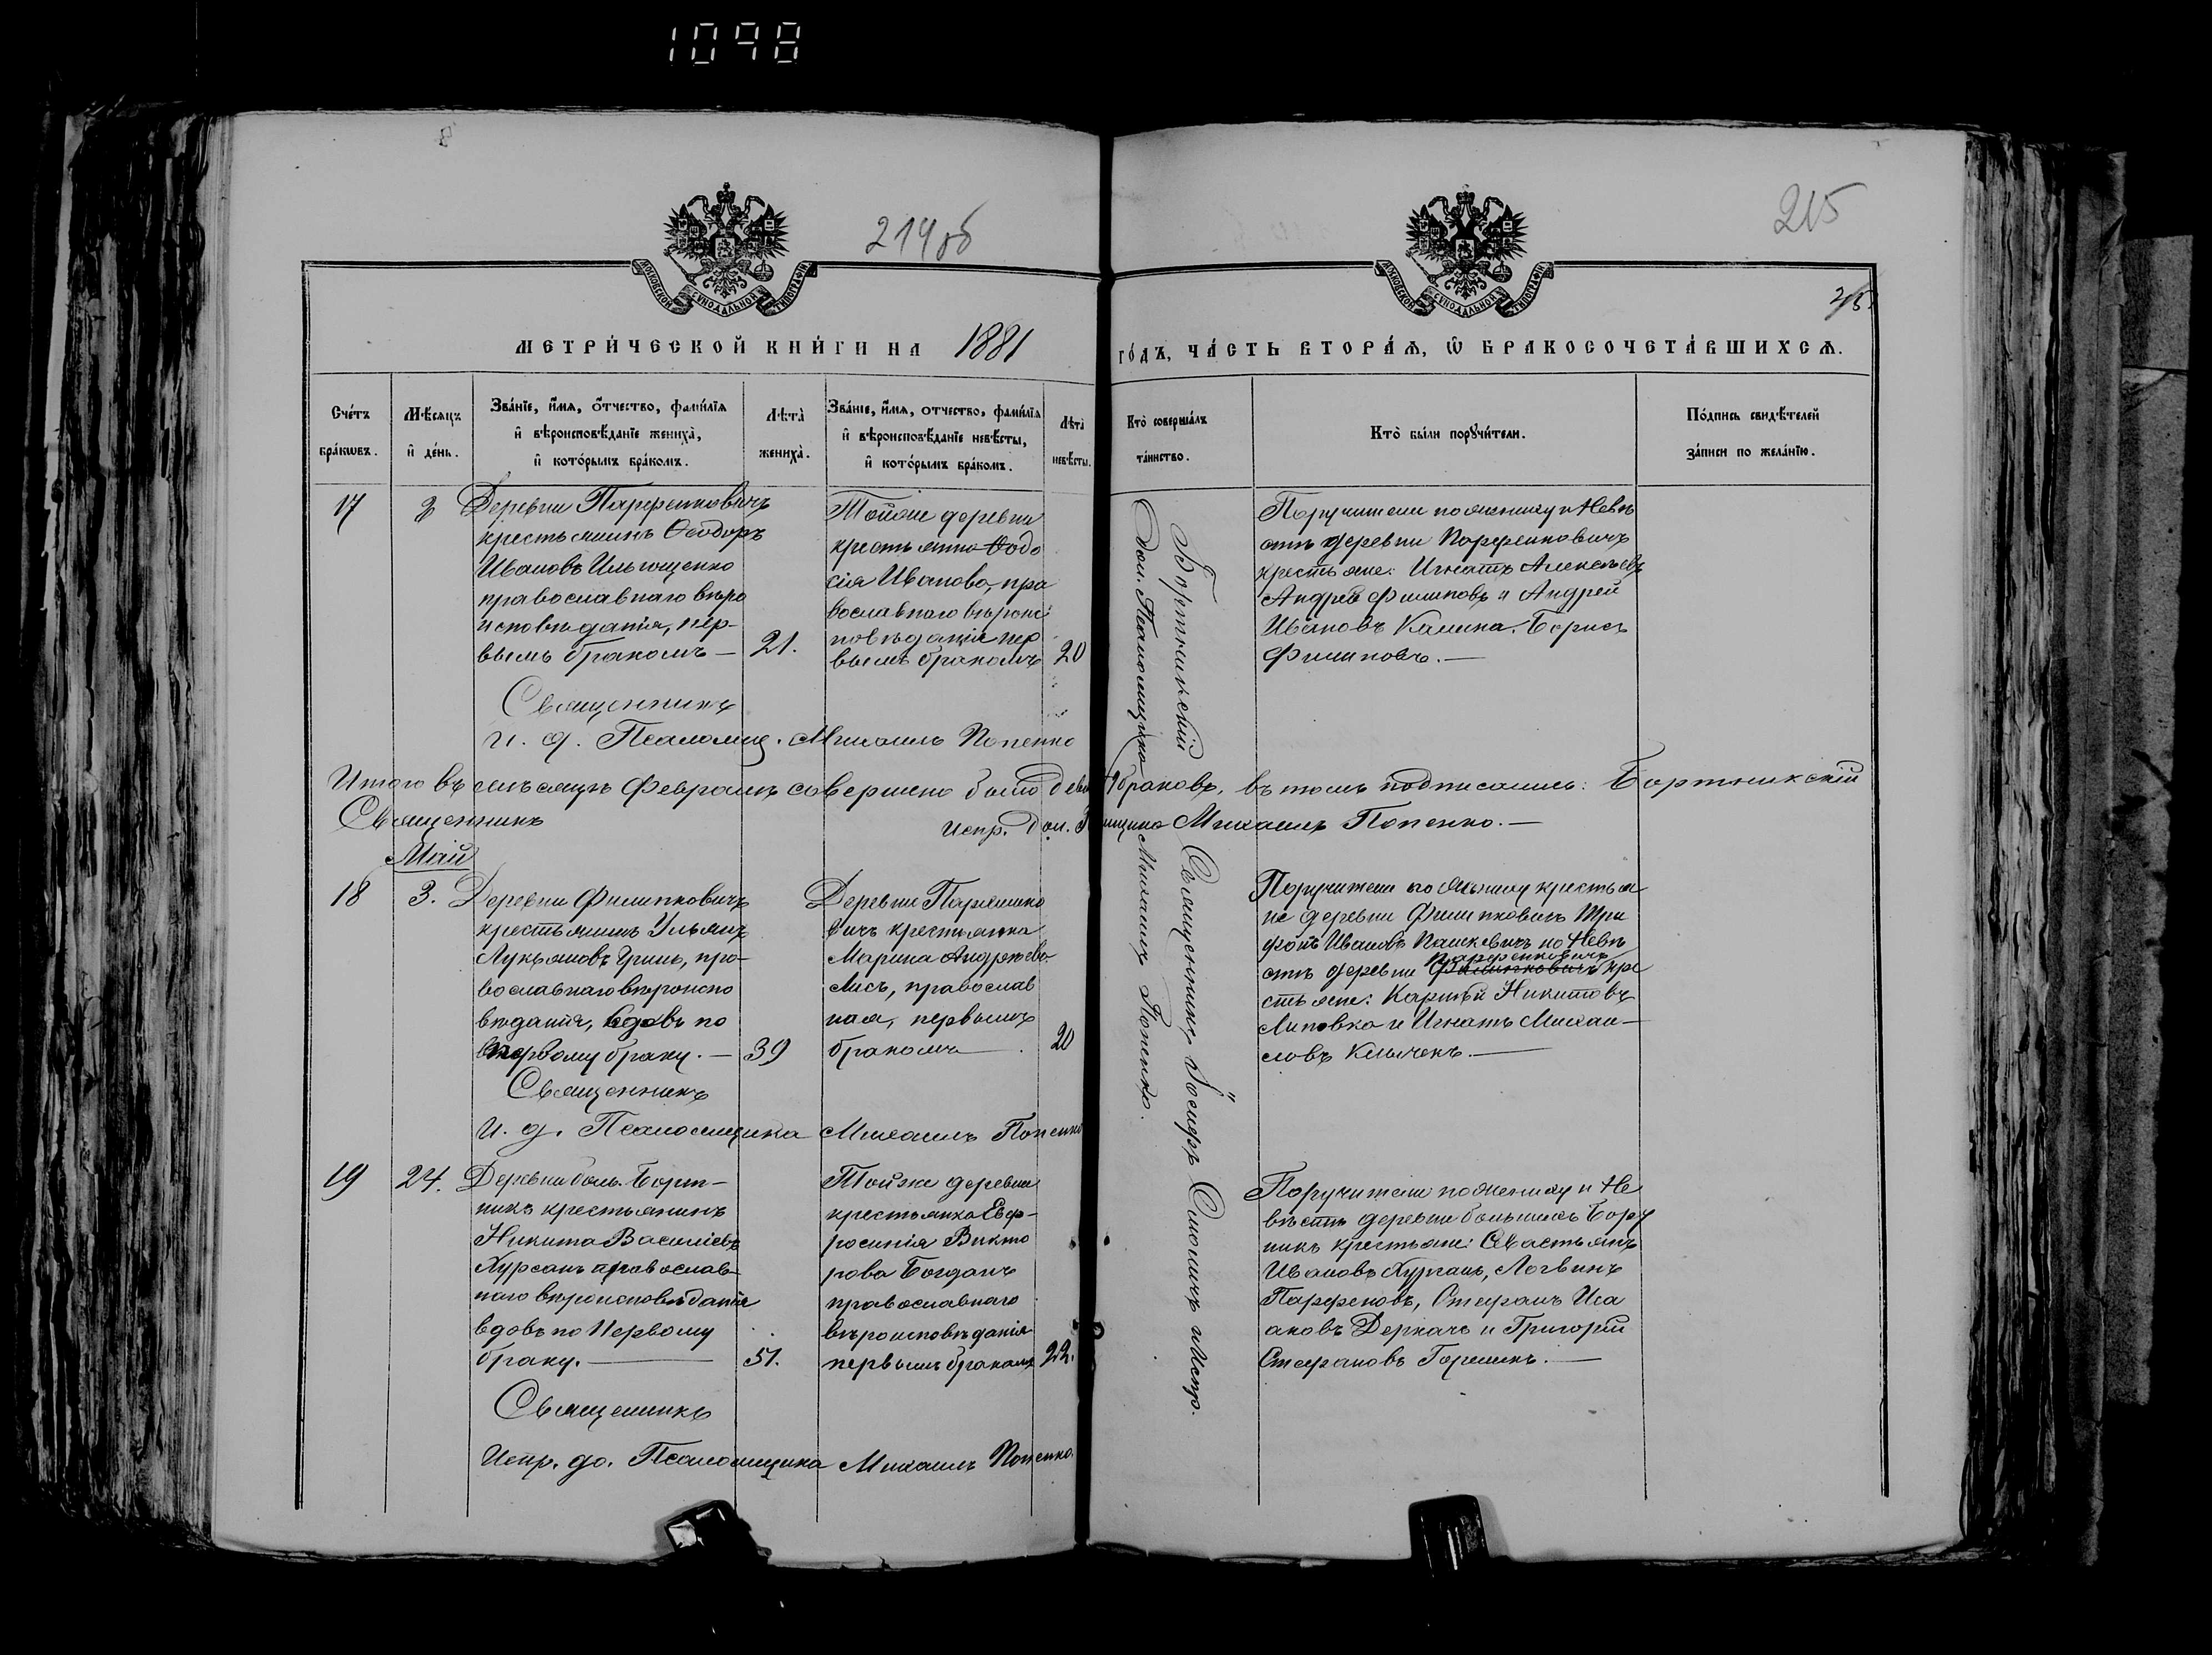 1098
214об
215
215
МОСКОВСКОЙ СѴНОДАЛЬНОЙ ТИПОГРАФІИ
МОСКОВСКОЙ СѴНОДАЛЬНОЙ ТИПОГРАФІИ
МЕТРИ́ЧЕСКОЙ КНИ́ГИ НА 1881 ГО́ДЪ, ЧА́СТЬ ВТОРА́Ѧ, Ѿ БРАКОСОЧЕТА́ВШИХСѦ.
Сче́тъ
бра́кѡвъ.
Мѣ́сяцъ
и҆ де́нь.
Зва́нїе, и҆́мя, ѻ҆́тчество, фами́лїя
и҆ вѣроисповѣ́данїе жениха̀,
и҆ кото́рымъ бра́комъ.
Лѣ́та
жениха̀.
Зва́нїе, и҆́мя, отчество, фами́лїя
и҆ вѣроисповѣ́данїе невѣ́сты,
и҆ кото́рымъ бра́комъ.
Лѣ́та
невѣ́сты.
Кто̀ соверша́лъ
та́инство.
Кто̀ бы́ли порꙋчи́тели.
По́дпись свидѣ́телей
за́писи по жела́нїю.
17
3
Деревни Парфенковичъ
крестьянинъ Ѳеодоръ
Ивановъ Ильющенко
православнаго вѣро
исповѣданія, пер-
вымъ бракомъ —
21.
Тойже деревни
крестьянка Ѳеодо
сія Иванова, пра
вославнаго вѣроис
повѣданія пер
вымъ бракомъ
20
Поручители по жениху и Невѣ
стѣ деревни Парфенковичъ
крестьяне: Игнатъ Алексѣевъ
Андрей Филиповъ и Андрей
Ивановъ Калина. Борисъ
Филиповъ. —
Священникъ
и. д. Псаломщ. Михаилъ Попенко
Итого въ мѣсяцѣ Февралѣ совершено было браковъ, въ томъ подписались: Бортникскій
Священникъ
испр. дол. Михаилъ Попенко. —
Май
18
3.
Деревни Филипковичъ
крестьянинъ Ульянъ
Лукьяновъ Гринь, пра-
вославнаго вѣроиспо
вѣданія, вдовъ по
первому браку. —
39
Деревни Парфенко
вичъ крестьянка
Марина Андреева
Лисъ, православ
ная, первымъ
бракомъ —
20
Поручители по жениху крестья
не деревни Филипковичъ Три
фонъ Ивановъ Пашкевичъ по Невѣ
Парфенковичъ
стѣ деревни Филипковичъ кре
стьяне: Карпъ Никитовъ
Липовка и Игнатъ Михаи-
ловъ Клычекъ. —
Священникъ
И. д. Псаломщика Михаилъ Попенко
19
24.
Деревни боль. Борт-
никъ крестьянинъ
Никита Василіевъ
Хурсанъ православ-
наго вѣроисповѣданія
вдовъ по Первому
браку. —
51.
Тойже деревни
крестьянка Евф-
росинія Викто
рова Богданъ
православнаго
вѣроисповѣданія
первымъ бракомъ
22.
Поручители по жениху и Не
вѣстѣ деревни большихъ Борт
никъ крестьяне: Севастьянъ
Ивановъ Хурсанъ, Логвинъ
Парфеновъ, Стефанъ Иса
аковъ Деркачъ и Григорій
Стефановъ Горошекъ. —
Священникъ
Испр. до. Псаломщика Михаилъ Попенко.
Бортникскій Священникъ Іосифъ Смоличъ и Испр.
дол. Псаломщика Михаилъ Попенко.